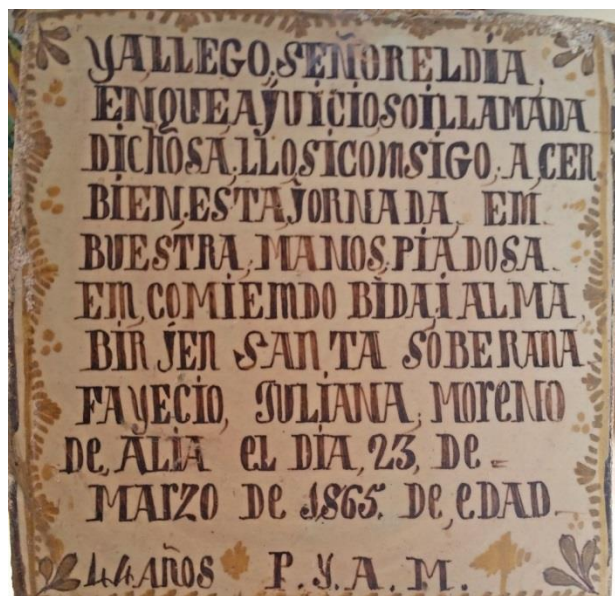 YALLEGO, SEÑOR EL DÍA.
EN QUE A JUICIO SOI LLAMADA
DICHOSA, LLO SI COMSIGO, A CER
BIEN, ESTA JORNADA, EM
BUESTRA, MANOS, PIADOSA.
EM, COMIEMDO BIDA, I ALMA,
BIRJEN SANTA SOBERANA
FAYECIO, JULIANA, MORENO
DE, ALIA EL DÍA, 23, DE
MARZO DE 1865. DE, EDAD.
44 AÑOS P. Y. A. M.